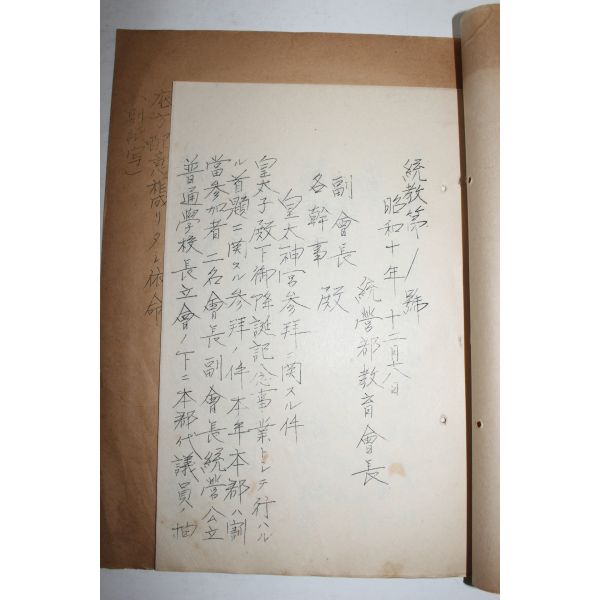 統教第1號
昭和十年十二月八日
統營郡教育會長
副會長
各幹事 殿
皇太神宮參拜ニ関スル件
皇太子殿下御降誕記念事業トシテ行ハル
ル首題ニ関スル參拜ノ件本年本郡ハ割
當參加者二名會長副會長統營公立
普通學校長立會ノ下ニ本郡代議員ノ抽